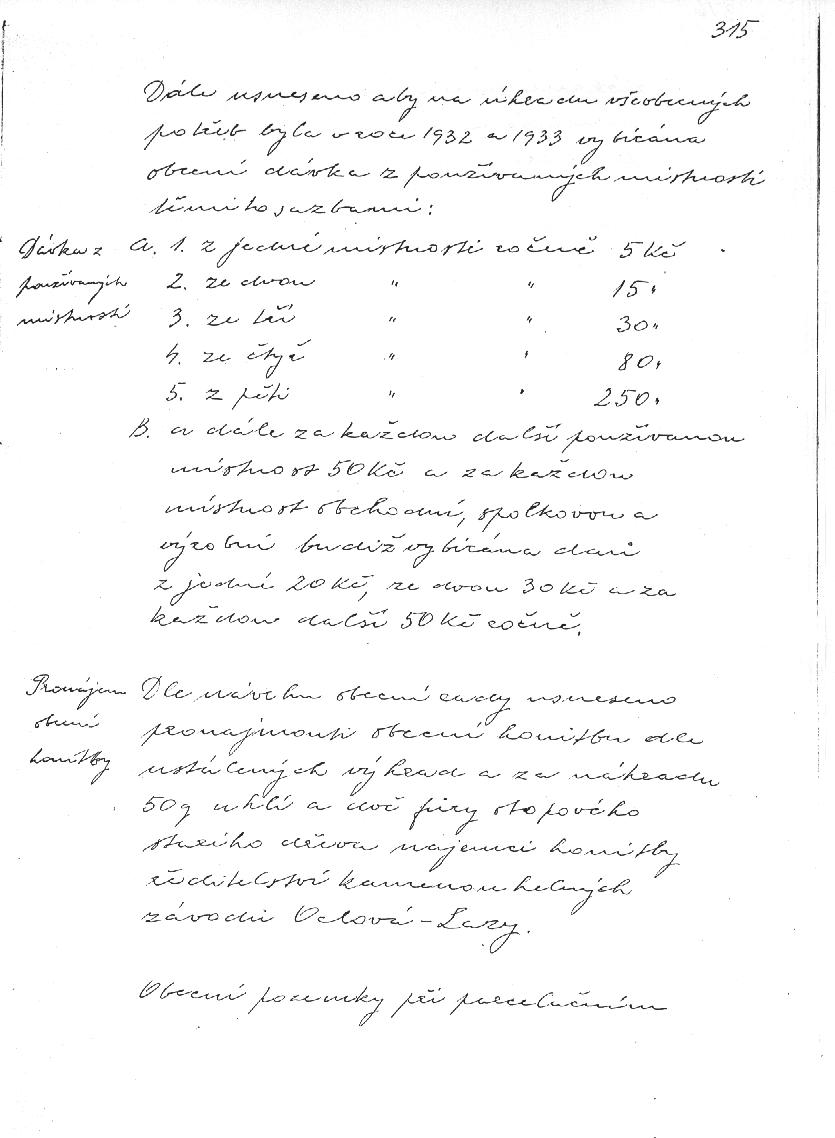 315
Dále usneseno aby na úhradu všeobecných
potřeb byla v roce 1932 a 1933 vybírána
obecní dávka z používaných místností
těmito sazbami:
Dávka z
používaných
místností
A. 1. z jedné místnosti ročně 5 Kč
2. ze dvou " " 15 "
3. ze tří " " 30 "
4. ze čtyř " " 80 "
5. z pěti " " 250 "
B. a dále za každou další používanou
místnost 50 Kč a za každou
místnost obchodní, spolkovou a
výrobní budiž vybírána daň
z jedné 20 Kč, ze dvou 30 Kč a za
každou další 50 Kč ročně.
Pronájem
obecní
honitby
Dle návrhu obecní rady usneseno
pronajmouti obecní honitbu dle
ustálených výhrad a za náhradu
50 q uhlí a dvě fůry stopového
starého dřeva nájemci honitby
ředitelství kamenouhelných
závodů Orlová-Lazy.
Obecní pozemky při parcelačním